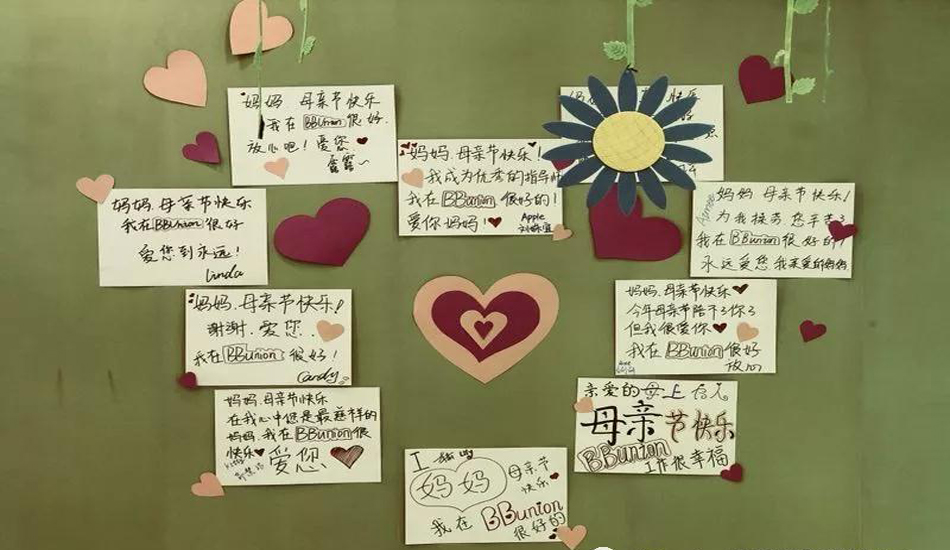 妈妈 母亲节快乐
我在BBunion很好.
放心吧！爱您
露露~
妈妈.母亲节快乐！
我成为优秀的指导师
我在BBunion很好的！
爱你妈妈！
Apple
妈妈 母亲节快乐！
为我操劳 您辛苦了
我在BBunion很好的！
永远爱您 我亲爱的妈妈
妈妈 母亲节快乐
我在BBunion很好
爱您到永远！
Linda
妈妈.母亲节快乐！
谢谢.爱您..
我在BBunion很好！
Candy
妈妈.母亲节快乐
今年母亲节陪不了你了
但我很爱你
我在BBunion很好
放心
妈妈.母亲节快乐
在我心中您是最慈祥的
妈妈.我在BBunion很
快乐
爱您
Kitty
亲爱的母上大人
母亲节快乐
BBunion
工作很幸福
妈妈
母亲节
快乐
我在BBunion
很好的